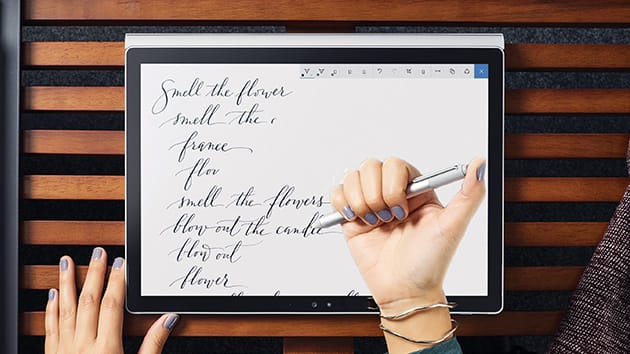 Smell the flower
smell the
france
smell the flowers
blow out the candle
blow out
flower